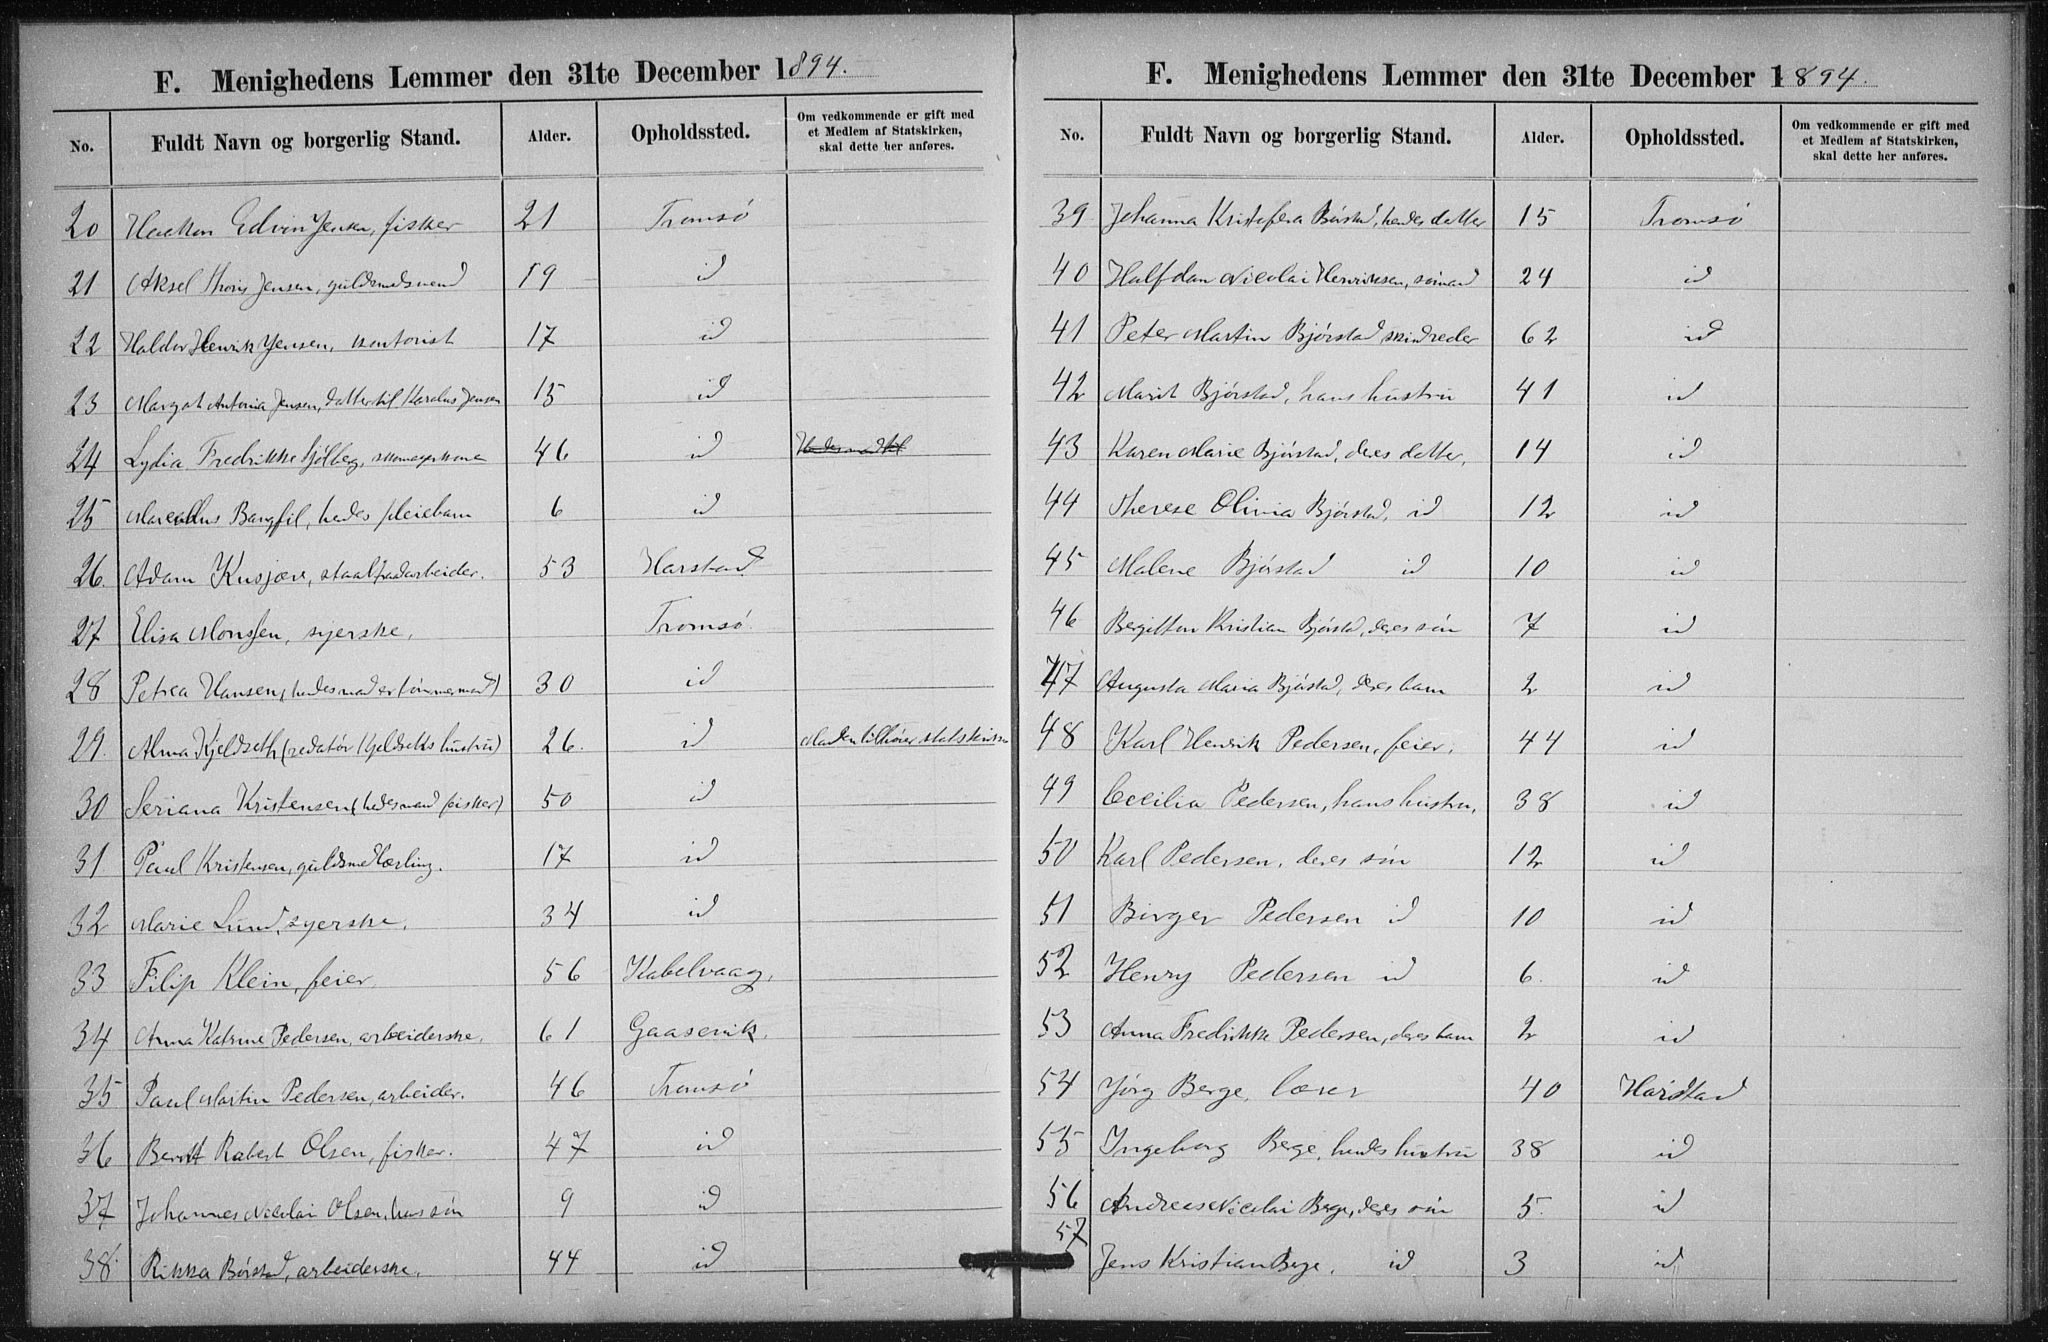 F. Menighedens Lemmer den 31te December 1894.
No. Fuldt Navn og borgerlig Stand. Alder. Opholdssted. Om vedkommende er gift med et Medlem af Statskirken, skal dette her anføres.
20 Haakon Edvin Jensen, fisker 21 Tromsø
21 Aksel Thoris Jensen, guldsmedsvend 19 id
22 Haldor Henrik Jensen, kontorist 17 id
23 Margot Antonia Jensen, datter til Karolus Jensen 15 id
24 Lydia Fredrikke Sjølberg, skomagerkone 46 id
25 Marcellus Bangfil, hedes pleiebarn 6 id
26. Adam Kusjær, staaltraadarbeider. 53 Harstad
27 Elisa Monssen, syerske. Tromsø
28 Petrea Hansen (hedes mand er tømmermand) 30 id
29. Alma Kjeldseth (redatør Kjeldseths hustru) 26. id Manden tilhører statskirken
30 Seriana Kristensen (hedes mand fisker) 50 id
31 Paul Kristensen, guldsmedlærling. 17 id
32 Marie Lund, syerske. 34 id
33 Filip Klein, feier 56 Kabelvaag,
34 Anna Katrine Pedersen, arbeiderske. 61 Gaasevik.
35 Paul Martin Pedersen, arbeider. 46 Tromsø
36 Berntt Robert Olsen, fisker. 47 id
37 Johannes Nicolai Olsen, hans søn 9 id
38. Rikka Børstad, arbeiderske. 44 id
F. Menighedens Lemmer den 31te December 1894.
No. Fuldt Navn og borgerlig Stand. Alder. Opholdssted. Om vedkommende er gift med et Medlem af Statskirken, skal dette her anføres.
39 Johanna Kristofera Børstad, hendes datter 15 Tromsø
40 Halfdan Nicolai Henriksen, sømand 24 id
41 Peter Martin Bjørstad, skindreder 62 id
42 Marit Bjørstad, hans hustru 41 id
43 Karen Marie Bjørstad, deres datter. 14 id
44 Therese Olivia Bjørstad, id 12 id
45 Malene Bjørstad id 10 id
46 Bergitton Kristian Bjørstad, deres søn 7 id
47 Augusta Maria Bjørstad, deres barn 2 id
48 Karl Henrik Pedersen, feier. 44 id
49 Cecilia Pedersen, hans hustru. 38 id
50 Karl Pedersen, deres søn 12 id
51 Birger Pedersen id 10 id
52 Henry Pedersen id 6. id
53 Anna Fredrikke Pedersen, deres barn 2 id
54 Jørg Berge, lærer 40 Harstad
55 Ingeborg Berge, hendes hustru 38 id
56 Andreas Nicolai Berge, deres søn 5. id
57 Jens Kristian Berge. id 3 id